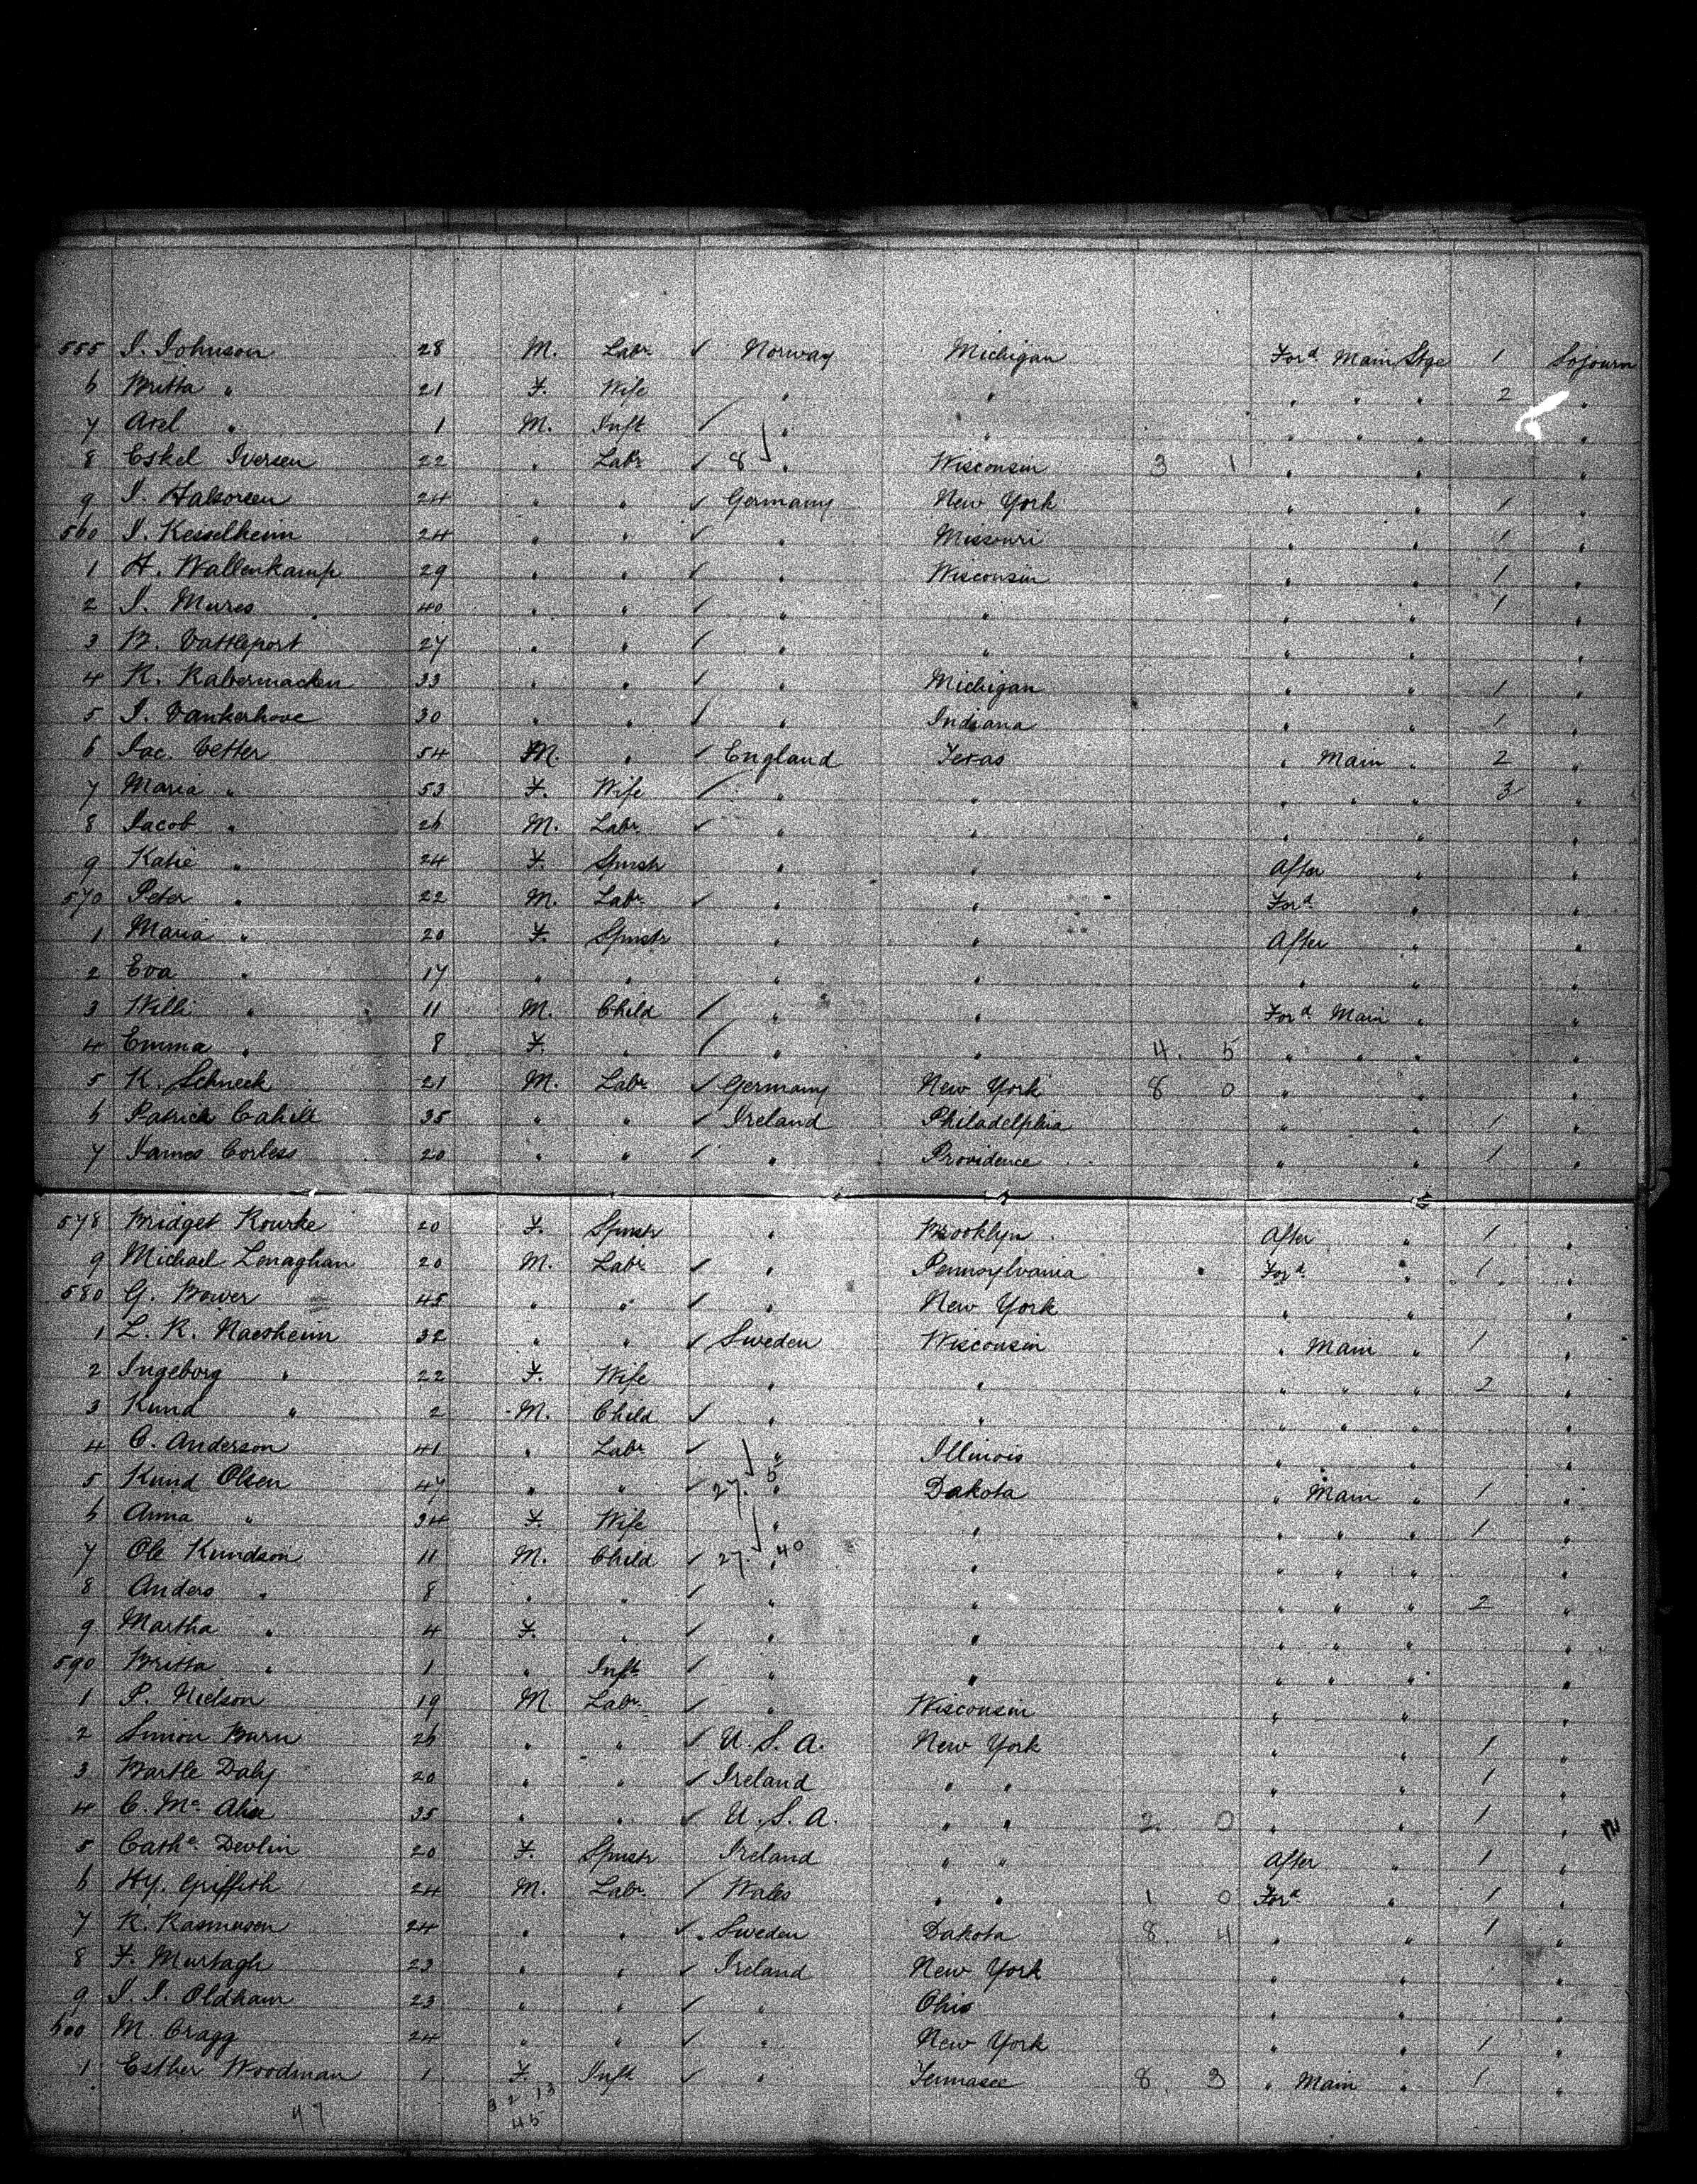 555 I. Johnson 28 M. Labr ✓ Norway Michigan Ford Main Stge 1 Sojourn
6 Britta " 21 F. Wife " " " " " 2 "
7 Axel " 1 M. Inft ✓ " " " " " "
8 Eskel Iversen 22 " Labr ✓ 8 " Wisconsin 3 1 " " "
9 I. Halvorsen 24 " " ✓ Germany New York " " 1 "
560 I. Kesselheim 24 " " ✓ " Missouri " " 1 "
1 H. Wallenkamp 29 " " ✓ " Wisconsin " " 1 "
2 I. Mures 40 " " ✓ " " " " 1 "
3 B. Vattleport 27 " " ✓ " " " " "
4 R. Rabermacken 33 " " ✓ " Michigan " " 1 "
5 I. Vankerhove 30 " " ✓ " Indiana " " 1 "
6 Jac. Vetter 54 M. " ✓ England Texas " Main " 2 "
7 Maria " 53 F. Wife ✓ " " " " " 3 "
8 Jacob " 26 M. Labr ✓ " " " " "
9 Katie " 24 F. Spinstr " " After " "
570 Peter " 22 M. Labr ✓ " " Ford " "
1 Maria " 20 F. Spinstr " " After " "
2 Eva " 17 " " " " " " "
3 Willi " 11 M. Child ✓ " " Ford Main " "
4 Emma " 8 F. " ✓ " " 4. 5 " " " "
5 K. Schneck 21 M. Labr ✓ Germany New York 8 0 " " "
6 Patrick Cahill 35 " " ✓ Ireland Philadelphia " " 1 "
7 James Corless 20 " " ✓ " Providence " " 1 "
578 Bridget Rourke 20 F. Spinstr " Brooklyn After " 1 "
9 Michael Lenaghan 20 M. Labr ✓ " Pennsylvania Ford " 1 "
580 G. Bower 45 " " ✓ " New York " " "
1 L. K. Naesheim 32 " " ✓ Sweden Wisconsin " Main " 1 "
2 Ingeborg " 22 F. Wife " " " " " 2 "
3 Knud " 2 M. Child ✓ " " " " " "
4 C. Anderson 41 " Labr ✓ " Illinois " " "
5 Knud Olsen 47 " " ✓ 27. 5 " Dakota " Main " 1 "
6 Anna " 34 F. Wife " " " " " 1 "
7 Ole Kundson 11 M. Child ✓ 27. 40 " " " " " "
8 Anders " 8 " " ✓ " " " " " 2 "
9 Martha " 4 F. " ✓ " " " " " "
590 Britta " 1 " Inft ✓ " " " " " "
1 P. Nielson 19 M. Labr ✓ " Wisconsin " " "
2 Simon Barn 26 " " ✓ U.S.A. New York " " 1 "
3 Bartle Daly 20 " " ✓ Ireland " " " " 1 "
4 C. Mc Alise 35 " " ✓ U.S.A. " " 2. 0 " " 1 "
5 Cathe Devlin 20 F. Spinstr Ireland " " After " 1 "
6 Hy. Griffith 24 M. Labr ✓ Wales " " 1 0 Ford " 1 "
7 R. Rasmusen 24 " " ✓ Sweden Dakota 8. 4 " " 1 "
8 F. Murtagh 23 " " ✓ Ireland New York " " "
9 I. I. Oldham 23 " " ✓ " Ohio " " "
600 M. Cragg 24 " " ✓ " New York " " 1 "
1 Esther Woodman 1 F. Inft ✓ " Tennasee 8. 3 " Main " 1 "
47 32 13
45